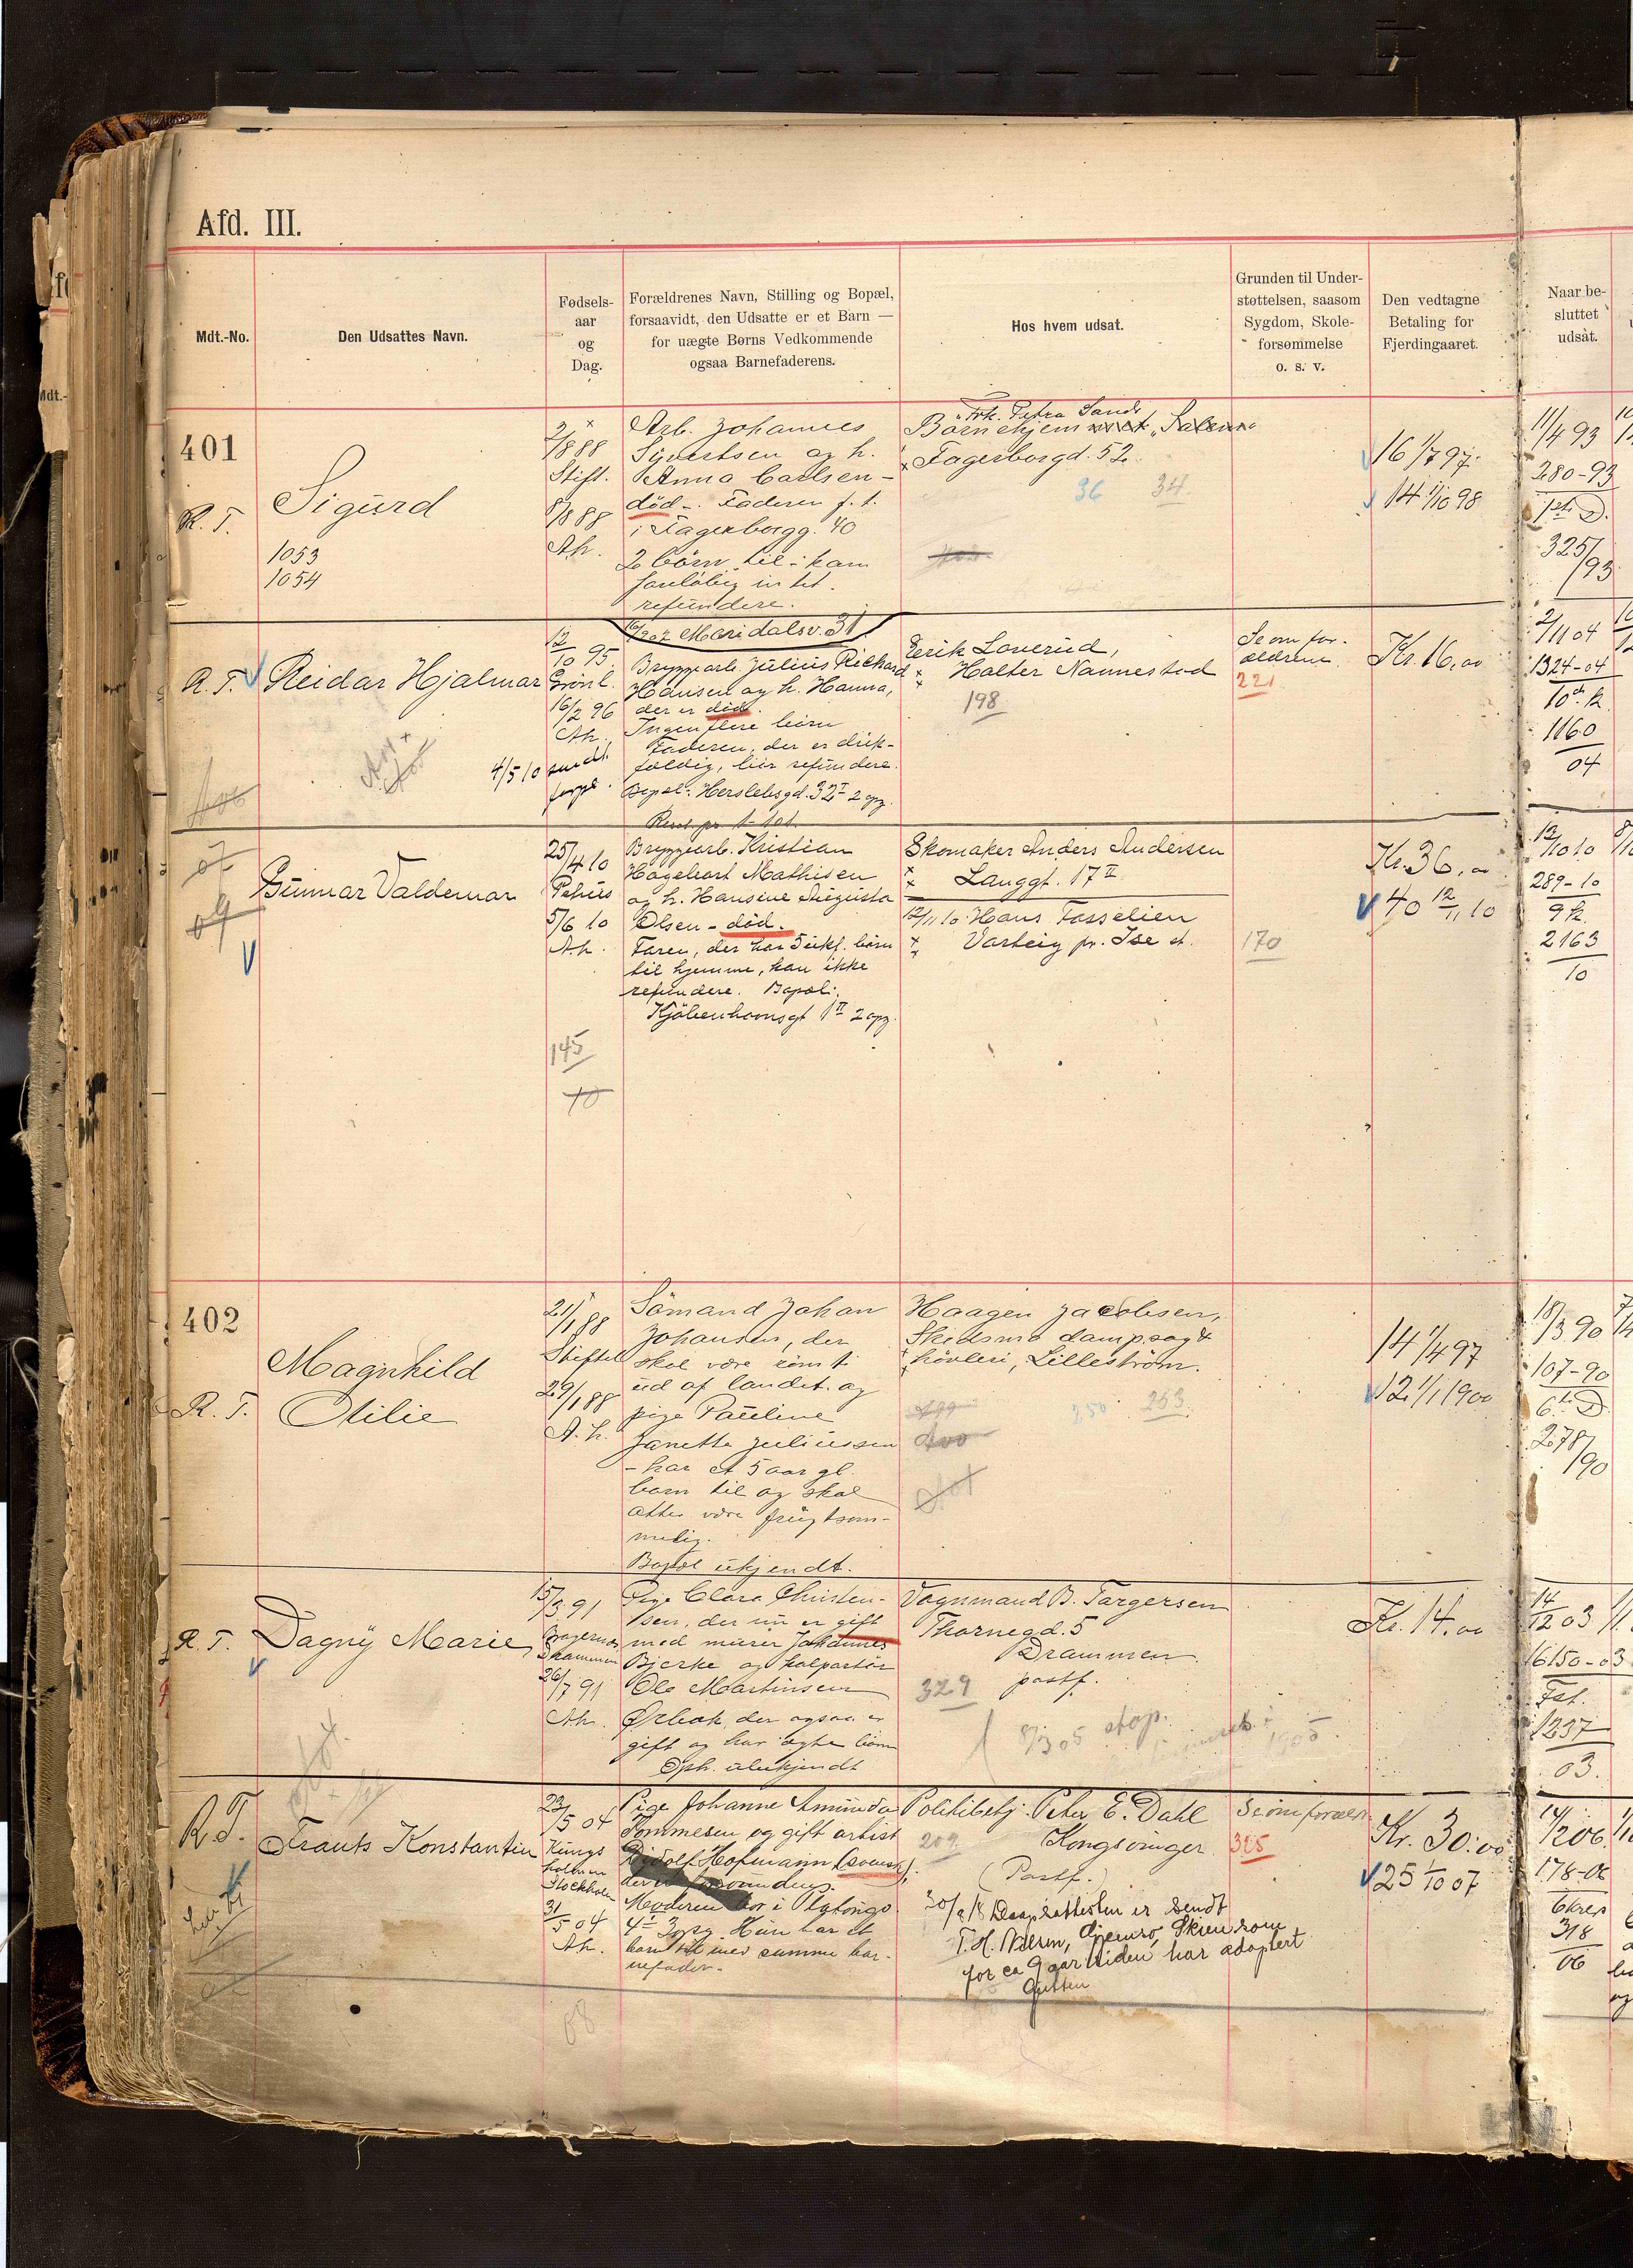 Afd. III.
Mdt.-No.
Den Udsattes Navn.
Fødsels-
aar
og
Dag.
Forældrenes Navn, Stilling og Bopæl,
forsaavidt, den Udsatte er et Barn —
for uægte Børns Vedkommende
ogsaa Barnefaderens.
Hos hvem udsat.
Grunden til Under-
støttelsen, saasom
Sygdom, Skole-
forsømmelse
o. s. v.
Den vedtagne
Betaling for
Fjerdingaaret.
Naar be-
sluttet
udsat.
401
R. T.
Sigurd
1053
1054
2/8 88
Stift.
8/8 88
Ah.
Arb. Johannes
Sivertsen og h.
Anna Carlsen –
død –. Faderen f. t.
i Fagerborgg. 40
2 börn til – kan
foreløbig intet
refundere.
Frk. Petra Sand
Barnehjemmet „Salem“
Fagerborgd. 52
36 34
16 1/7 97.
14 1/10 98
11/4 93
280-93
1ste D.
325/93
R. T.
Reidar Hjalmar
12/10 95
Grönl.
16/2 96
Ah.
4/5 10 sendt
Maridalsv. 31
Bryggearb. Julius Rickard
Hansen og h. Hanna,
der er död.
Ingen flere börn
Faderen, der er drik-
fældig, bör refundere.
Bopæl: Herslebsgd. 32 I 2 opg.
Erik Lønerud,
Holter Nannestad
198
Se om for-
ældrene.
221
Kr. 16,00
2/11 04
1324-04
10de k.
1160
04
07
09
Gunnar Valdemar
25/4 10
Petrus
5/6 10
A.h.
145
10
Bryggearb. Kristian
Hagebart Mathisen
og h. Hansine Augusta
Olsen – død.
Faren, der har 5 ukf. börn
til hjemme, kan ikke
refundere. Bopæl:
Kjöbenhavnsgt 1 II 2 opg.
Skomaker Anders Andersen
Langgt. 17 II
12/11 10 Hans Fosselien
Varteig pr. Ise st.
170
Kr. 36,00
40 12/11 10
12/10 10
289-10
9 k.
2163
10
402
R. T.
Magnhild
Otilie
21/1 88
Stiftet
29/1 88
A. h.
Sömand Johan
Johansen, der
skal være römt
ud af landet og
pige Pauline
Janette Juliussen
– har et 5 aar gl.
barn til og skal
atter være frugtsom-
melig.
Bopæl ukjendt.
Haagen Jacobsen,
Skedsmo dampsag &
hövleri, Lilleström.
250 253
14 1/4 97
12 1/1 1900
18/3 90
107-90
6te D.
278/90
R. T.
Dagny Marie
15/3 91
Bragernes
Drammen
26/7 91
Ah.
Pige Clara Christen-
sen, der nu er gift
med murer Johannes
Bjerke og kolportör
Ole Martinsen
Ørbæk, der ogsaa er
gift og har ægte börn
Oph. ubekjendt
Vognmand B. Torgersen
Thornegd. 5
Drammen.
postf.
329
8/3 05 stop.
Kr. 14.00
14/12 03
16150-03
Fst.
1237
03.
R. T.
Frants Konstantin
23/5 04
Kungs
holmen
Stockholm
31/5 04
Ah.
08
Pige Johanne Amunda
Tommesen og gift artist
Rudolf Hofmann (svensk),
der er forsvunden.
Moderen bor i Platöugt
4 I 3 opg. Hun har et
barn til med samme bar-
nefader.
Politibetj. Peter E. Dahl
Kongsvinger
(Postf.)
209
30/8 18 Daapsattesten er sendt
T. H. Nilsen, Gjemsö, Skien som
for ca 9 aar siden har adoptert
Gutten
Se om foræld.
325
Kr. 30.00
25 1/10 07
14/2 06
178-06
6kres
318
06